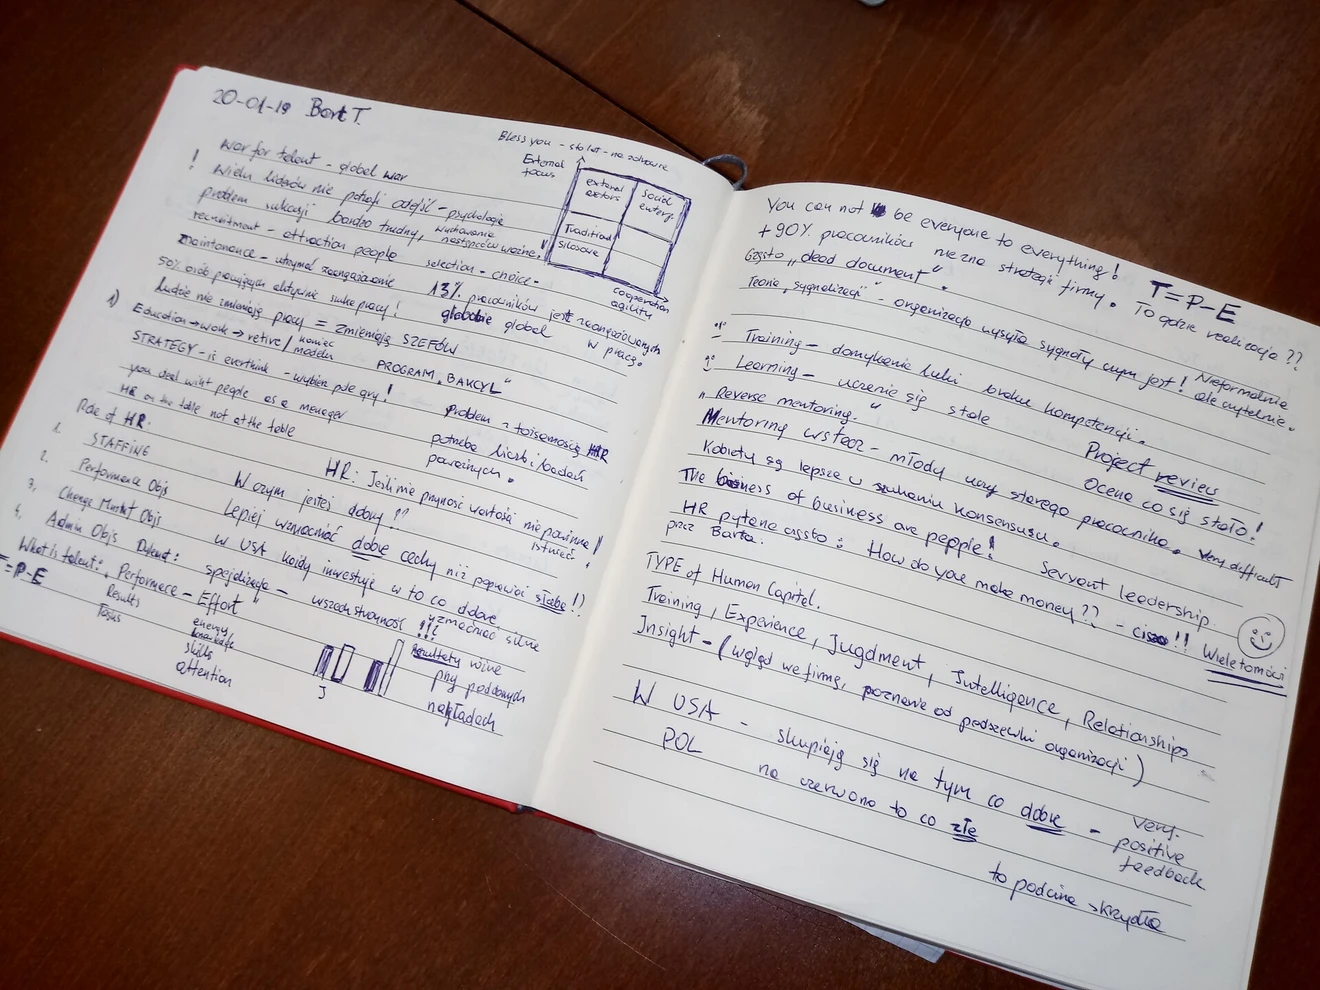 20-01-19 Bart T.
Bless you - sto lat - na zdrowie
External focus
external
Social enterp.
Traditional
silosowe
cooperation
agility
war for talent - global war
! Wielu liderów nie potrafi odejść - psychologia
problem sukcesji bardzo trudny, wychowanie następców ważne!
recruitment - attraction people selection - choice
maintanance - utrzymać zaangażowanie 13% pracowników jest zaangażowanych
50% osób pracujących aktywnie szuka pracy! global w pracę!
1) ludzie nie zmieniają pracy = zmieniają SZEFÓW
Education → work → retive / koniec modelu PROGRAM „BAKCYL"
STRATEGY - is everthink - wybierz pole gry!
you deal wiht people as a manager Problem z tożsamością HR
HR on the table not at the table potrzeba liczb i badań
Role of HR. poważnych.
1. STAFFING HR: Jeśli nie przynosi wartości nie powinno istnieć!
2. Performance Objs W czym jesteś dobry!?
3. Change Mgmt Objs Lepiej wzmocnić dobre cechy niż poprawiać słabe!)
4. Admin Objs w USA każdy inwestuje w to co dobre,
What is talent: spejalizacja - wszechstronność !!! wzmacniać silne
T=P-E Performace - Effort"
Results energy
Tasks knowledge
skills
attention
J
Rezultaty
przy podobnych
nakładach
You can not be everyone to everything!
+90% pracowników nie zna strategii firmy. T=P-E
Często „dead document". To gdzie realizacja??
Teoria „sygnalizacji" - organizacja wysyła sygnały czym jest! Nieformalnie ale czytelnie.
Training - domykanie luki braku kompetencji.
Learning - uczenie się stale
„Reverse mentoring." Project review
Mentoring wstecz - młody uczy starego pracownika. Ocena co się stało!
Kobiety są lepsze w szukaniu konsensusu. Very difficult
The business of business are pepple! Servant leadership
HR pytane często: How do you make money?? - cisza!!
przez Barta. Wieletomówi
TYPE of Human Capitel.
Training, Experience, Jugdment, Intelligence, Relationships
Insight - (wgląd we firmę, poznanie od podszewki organizacji)
W USA - skupiają się na tym co dobre - very.
POL na czerwono to co złe positive
feedback
to podcina skrzydła